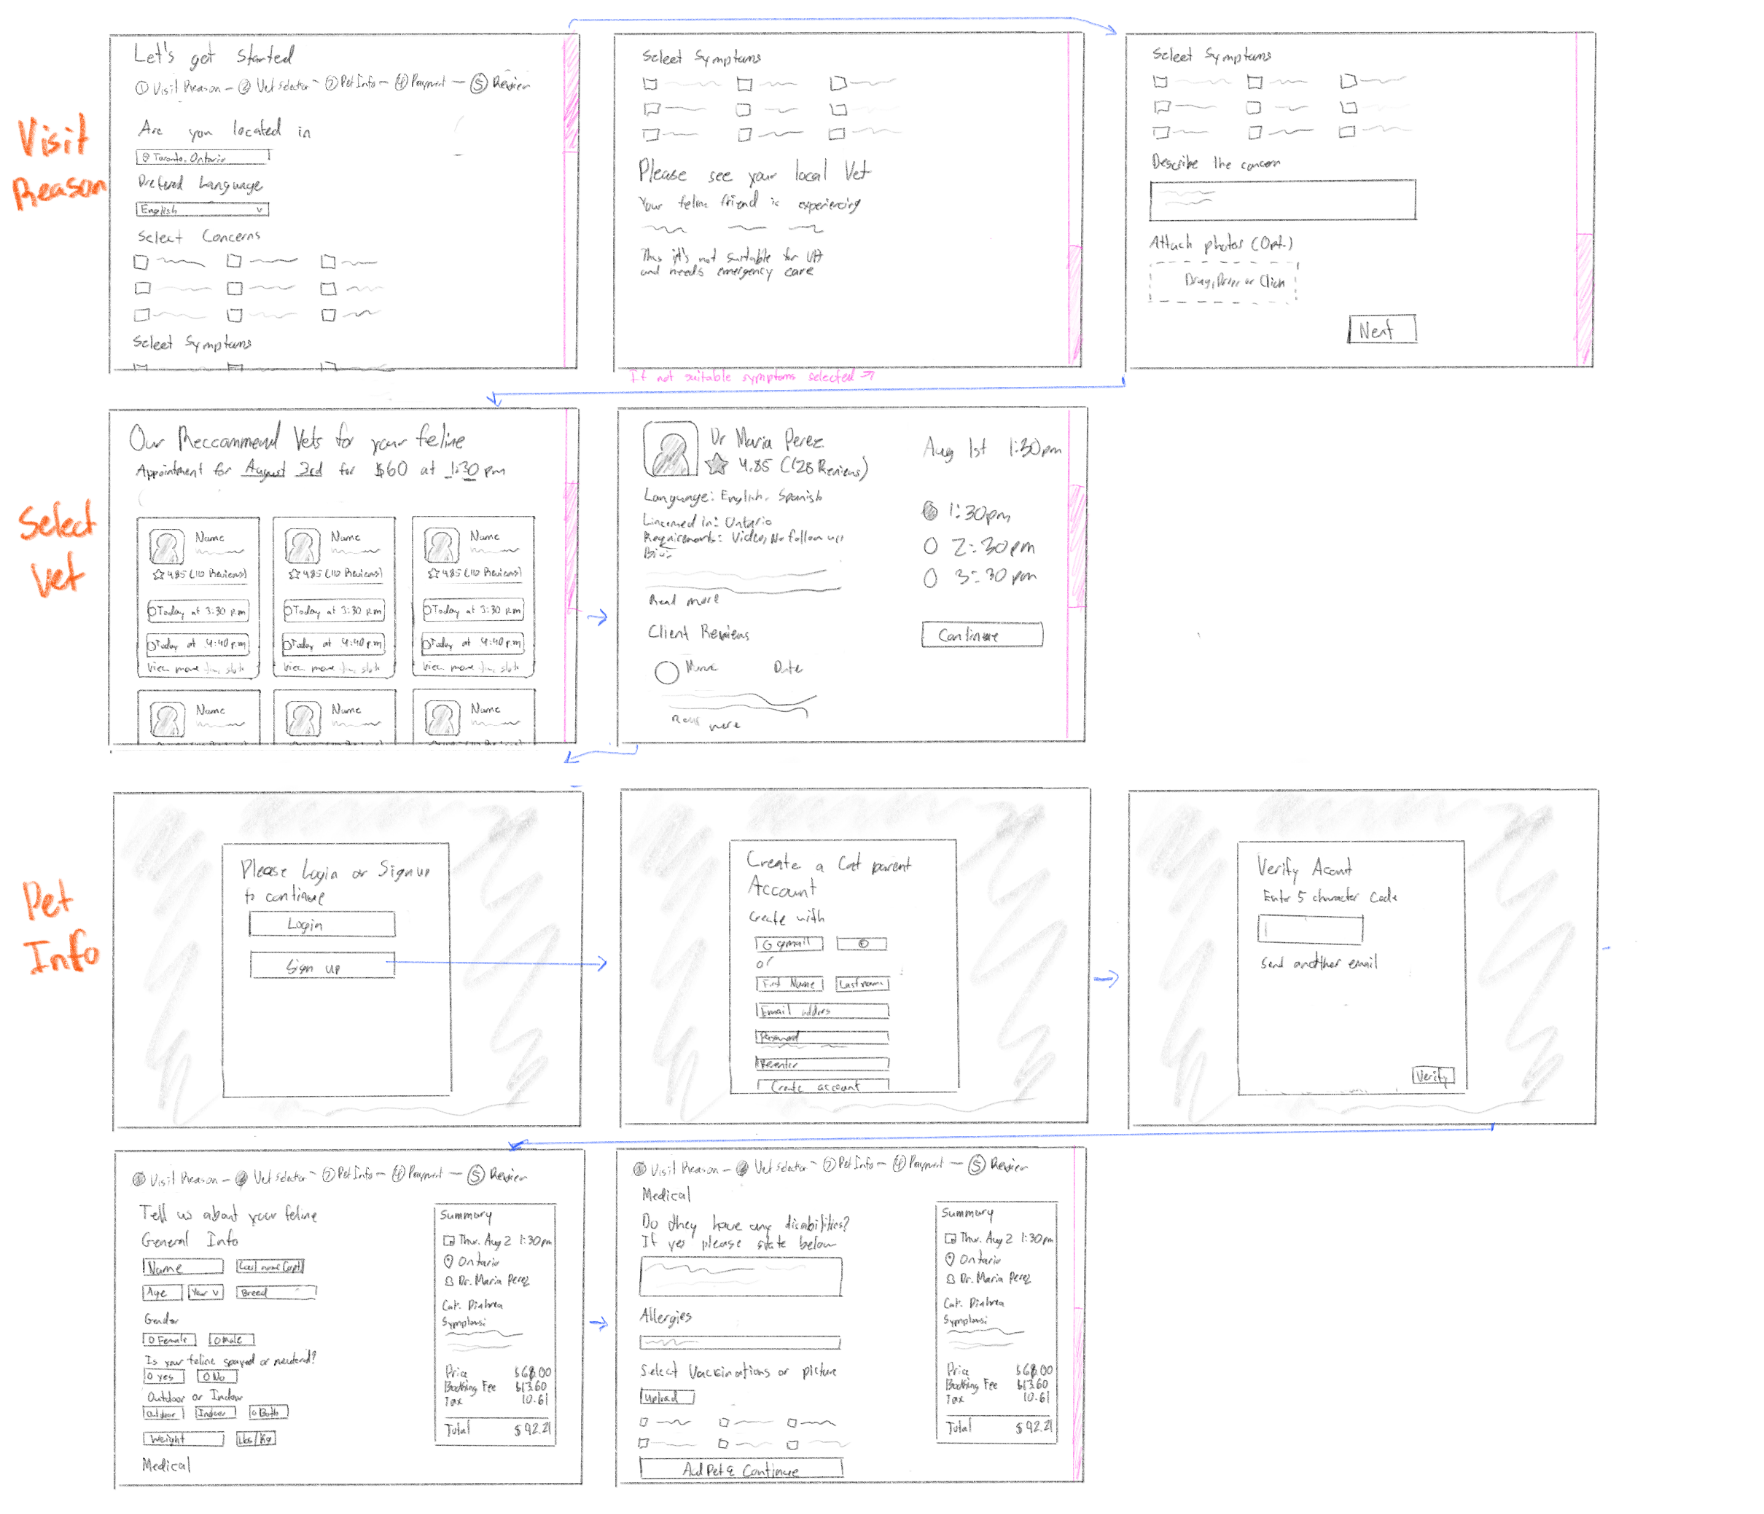 Visit
Reason
Let's get started
① Visit Reason - ② Vet Selector - ③ Pet Info - ④ Payment - ⑤ Review
Are you located in
Toronto, Ontario
Prefered Language
English v
Select Concerns
Select Symptoms
Select Symptoms
Please see your local Vet
Your feline friend is experiencing
This it's not suitable for
and needs emergency care
If not suitable symptoms selected
Select Symptoms
Describe the concern
Attach photos (Opt.)
Drag, Drop or Click
Next
Select
Vet
Our Reccommend Vets for your feline
Appointment for August 3rd for $60 at 1:30 pm
Name
4.85 (110 Reviews)
Today at 3:30 p.m
Today at 4:40 p.m
View more time slots
Name
4.85 (110 Reviews)
Today at 3:30 p.m
Today at 4:40 p.m
View more time slots
Name
4.85 (110 Reviews)
Today at 3:30 p.m
Today at 4:40 p.m
View more time slots
Name
Name
Name
Dr Maria Perez
4.85 (128 Reviews)
Language: English, Spanish
Lincensed in: Ontario
Requirements: Video, No follow ups
Bio:
Read more
Client Reviews
Name Date
Read more
Aug 1st 1:30pm
1:30pm
2:30pm
3:30pm
Continue
Pet
Info
Please Login or Sign up
to continue
Login
Sign up
Create a Cat parent
Account
Create with
G gmail
or
First Name Last name
Email addres
Password
Reenter
Create account
Verify Acount
Enter 5 character Code
Send another email
Verify
Visit Reason - Vet Selector - ③ Pet Info - ④ Payment - ⑤ Review
Tell us about your feline
General Info
Name Last name (opt)
Age Year v Breed
Gender
Female Male
Is your feline spayed or neutered?
Yes No
Outdoor or Indoor
Outdoor Indoor Both
Weight Lbs/Kg
Medical
Summary
Thur. Aug 2 1:30pm
Ontario
Dr. Maria Perez
Cat. Diahrea
Symptoms:
Price $68.00
Booking Fee $13.60
Tax 10.61
Total $92.21
Visit Reason - Vet Selector - ③ Pet Info - ④ Payment - ⑤ Review
Medical
Do they have any disabilities?
If yes please state below
Allergies
Select Vaccinations or picture
Upload
Add Pet & Continue
Summary
Thur. Aug 2 1:30pm
Ontario
Dr. Maria Perez
Cat. Diahrea
Symptoms:
Price $68.00
Booking Fee $13.60
Tax 10.61
Total $92.21